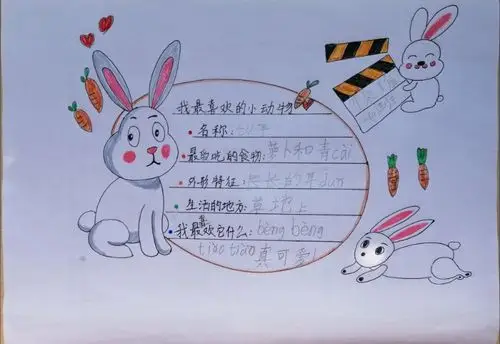 我最喜欢的小动物
名称:
最爱吃的食物:萝卜和青cài
外形特征:长的耳
生活的地方:草地上
我最喜欢它什么:bèng bèng
tiào tiào 真可爱!